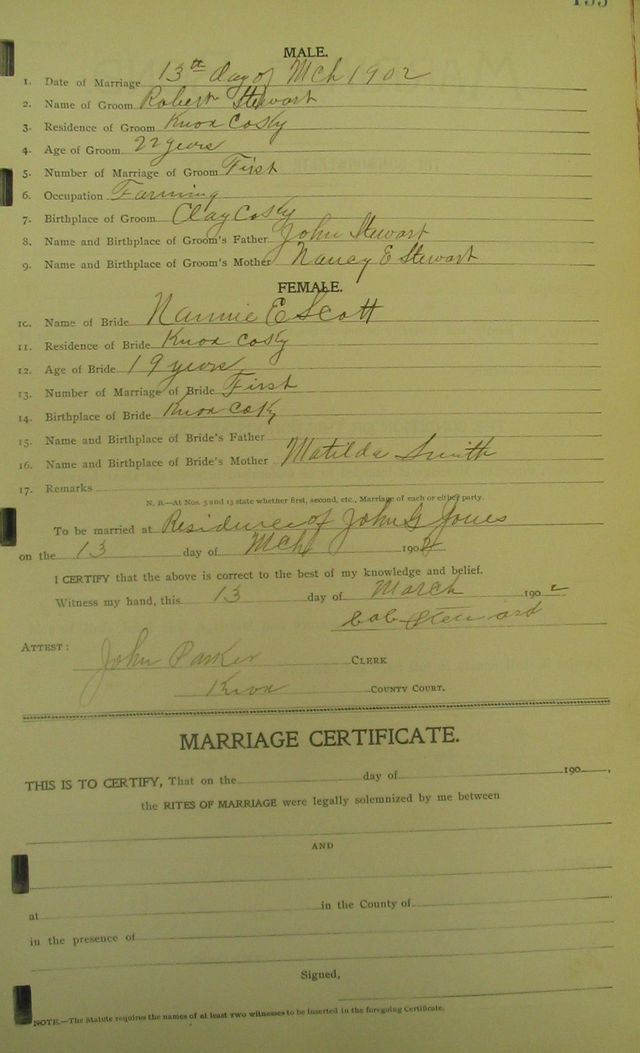 MALE.
1. Date of Marriage 13th day of Mch 1902
2. Name of Groom Robert Stewart
3. Residence of Groom Knox Co Ky
4. Age of Groom 22 years
5. Number of Marriage of Groom First
6. Occupation Farming
7. Birthplace of Groom Clay Co Ky
8. Name and Birthplace of Groom's Father John Stewart
9. Name and Birthplace of Groom's Mother Nancy E Stewart
FEMALE.
10. Name of Bride Nannie E Scott
11. Residence of Bride Knox Co Ky
12. Age of Bride 19 years
13. Number of Marriage of Bride First
14. Birthplace of Bride Knox Co Ky
15. Name and Birthplace of Bride's Father
16. Name and Birthplace of Bride's Mother Matilda Smith
17. Remarks
N. B.—At Nos. 5 and 13 state whether first, second, etc., Marriage of each or either party.
To be married at Residence of John G Jones
on the 13 day of Mch 1902
I CERTIFY that the above is correct to the best of my knowledge and belief.
Witness my hand, this 13 day of March 1902
bob Steward
ATTEST:
John Parker CLERK
Knox COUNTY COURT.
MARRIAGE CERTIFICATE.
THIS IS TO CERTIFY, That on the day of 190 ,
the RITES OF MARRIAGE were legally solemnized by me between
AND
at in the County of
in the presence of
Signed,
NOTE.—The Statute requires the names of at least two witnesses to be inserted in the foregoing Certificate.